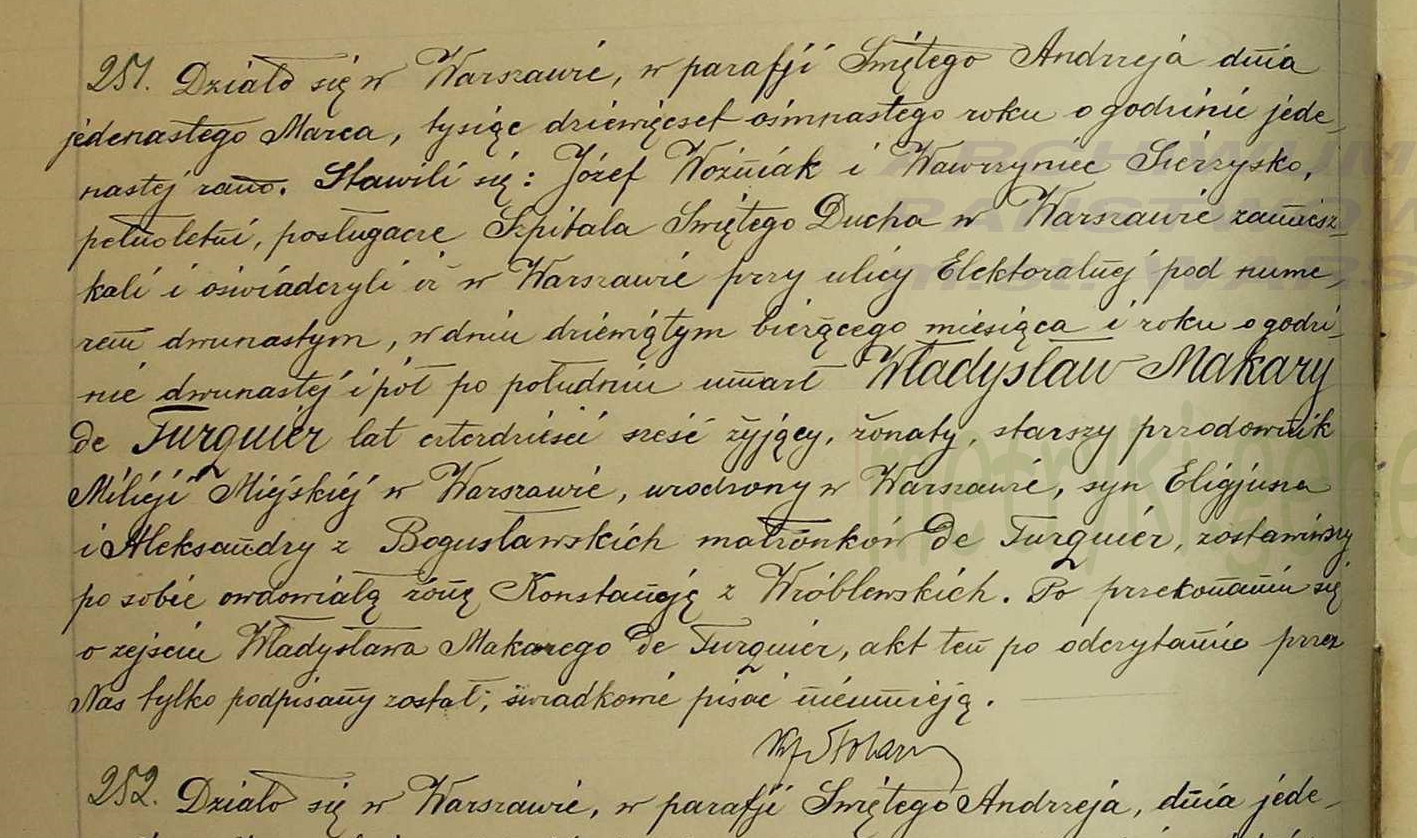 251. Działo się w Warszawie, w parafji Świętego Andrzeja dnia
jedenastego Marca, tysiąc dziewięcset ośmnastego roku o godzinie jede-
nastej rano. Stawili się: Józef Woźniak i Wawrzyniec Sierzysko,
pełnoletni, posługacze Szpitala Świętego Ducha w Warszawie zamiesz-
kali i oświadczyli iż w Warszawie przy ulicy Elektoralnej pod nume-
rem dwunastym, w dniu dziewiątym bieżącego miesiąca i roku o godzi-
nie dwunastej i pół po południu umarł Władysław Makary
de Turquier lat czterdzieści sześć żyjący, żonaty, starszy przodownik
Milicji Miejskiej w Warszawie, urodzony w Warszawie, syn Eligjusza
i Aleksandry z Bogusławskich małżonków de Turquier, zostawiwszy
po sobie owdowiałą żonę Konstancję z Wróblewskich. Po przekonaniu się
o zejściu Władysława Makarego de Turquier, akt ten po odczytaniu przez
Nas tylko podpisany został; świadkowie pisać nieumieją.
252. Działo się w Warszawie, w parafji Świętego Andrzeja, dnia jede-
ARCHIWUM
WARS
metryki.gene